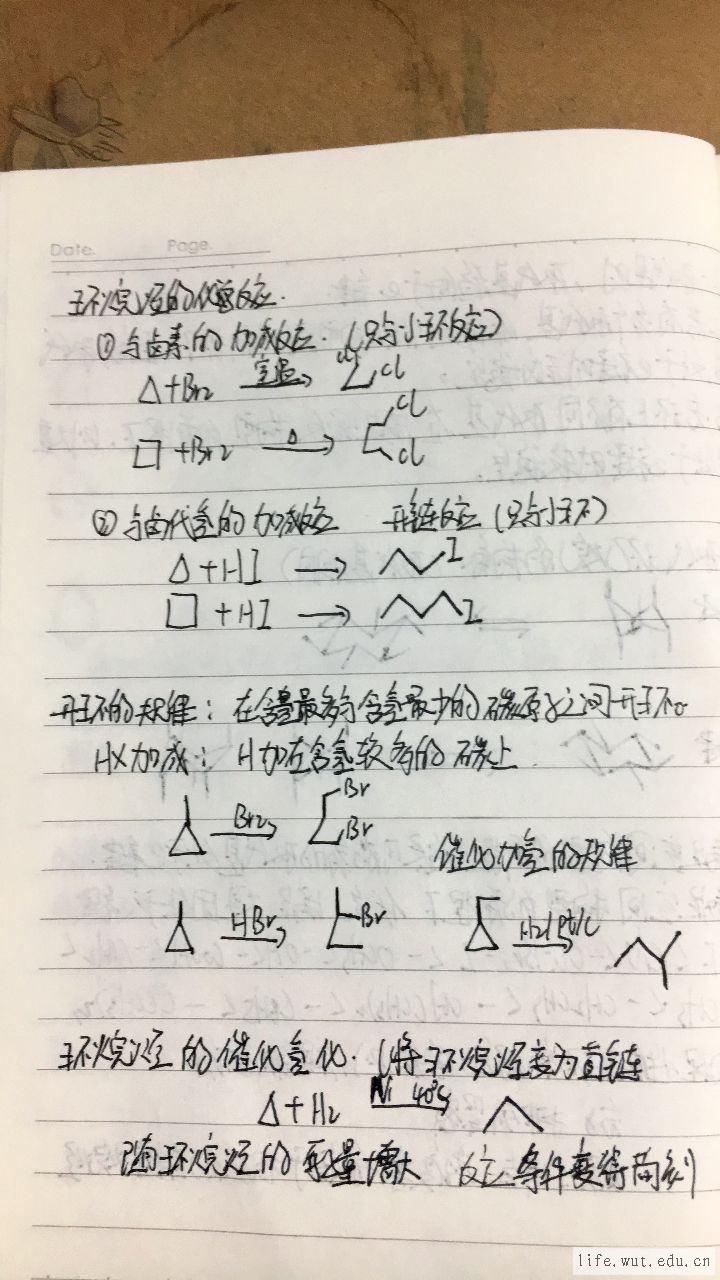 Date. Page.
环烷烃的代表反应.
① 与卤素的加成反应. (只与小环反应)
△+Br2 室温→ Cl Cl
□+Br2 △→ Cl Cl
② 与卤代氢的加成反应 开链反应 (只与小环)
△+HI → I
□+HI → I
开环的规律: 在含氢最多与含氢最少的碳原子之间开环。
HX加成: H加在含氢较多的碳上
Br2→ Br Br
催化加氢的规律
HBr→ Br H2/Pt/C
环烷烃的催化氢化. (将环烷烃变为直链
△+H2 Ni 40℃→
随环烷烃的 增大 反应条件变得苛刻
life.wut.edu.cn